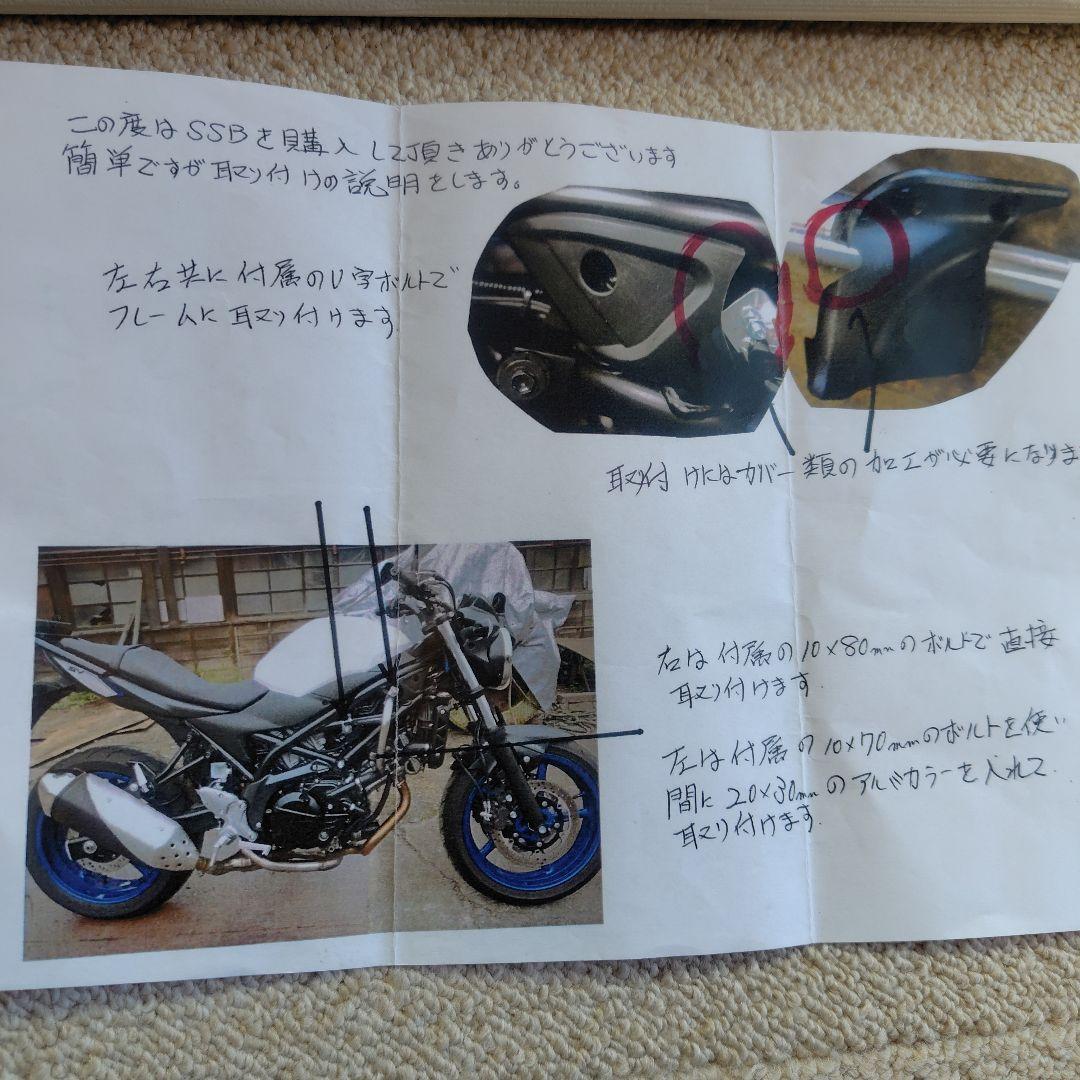 この度はSSBを購入して頂きありがとうございます
簡単ですが取り付けの説明をします。
左右共に付属のU字ボルトで
フレームに取り付けます
取り付けにはカバー類の加工が必要になりま
右は付属の10×80mmのボルトで直接
取り付けます.
左は付属の10×70mmのボルトを使い
間に20×30mmのアルミカラーを入れて.
取り付けます.
SV